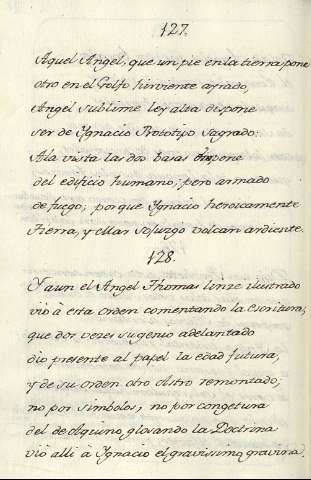 127.
Aquel Angel, que un pie en la tierra pone
otro en el Golfo hirviente ayrado,
Angel sublime ley alta dispone
ser de Ygnacio Prototipo Sagrado:
A la vista las dos basas
del edificio humano; pero armado
de fuego; porque Ygnacio heroicamente
Tierra, y Mar sojuzgó volcan ardiente.
128.
Y aun el Angel Thomas lince ilustrado
vió à esta orden comentando la escritura;
que dos veces su genio adelantado
dio presente al papel la edad futura;
y de su orden otro Astro remontado;
no por simbolos; no por congetura
del de Aquino, glosando la Doctrina
vió alli à Ygnacio el gravissimo